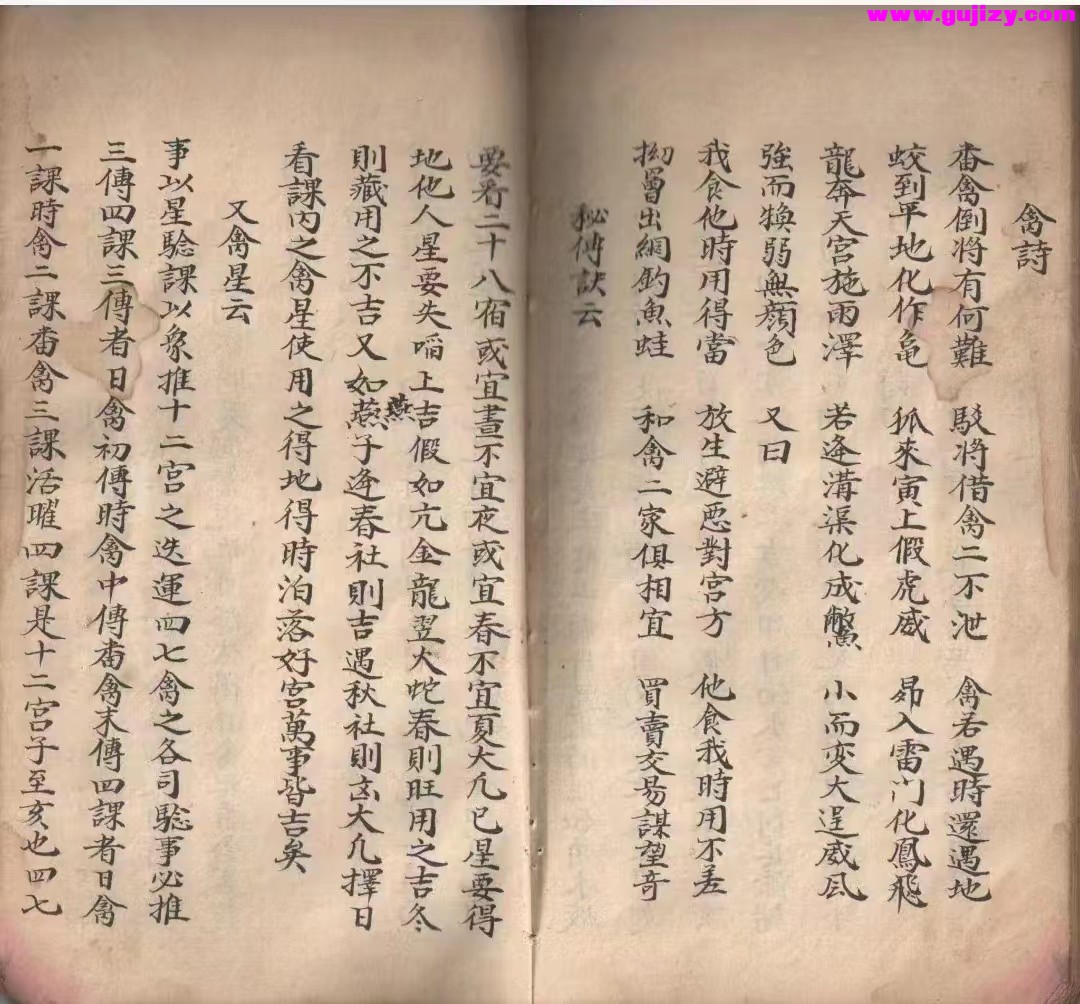 www.gujizy.com
禽詩
畨禽倒將有何難 駁將借禽二不泄 禽若遇時還遇地
蛟到平地化作龟 狐來寅上假虎威 昴入雷门化鳳飛
龍奔天宮施雨澤 若逄溝渠化成鱉 小而变大逞威風
強而犃弱無顔色 又曰
我食他時用得當 放生避惡對宮方 他食我時用不差
拗曾出網釣魚蛙 和禽二家俱相宜 買賣交易謀望奇
秘傳訣云
要看二十八宿或宜晝不宜夜或宜春不宜夏大凢已星要得
地他人星要失啗上吉假如亢金龍翌火蛇春則旺用之吉冬
則藏用之不吉又如燕子逄春社則吉遇秋社則凶大凢擇日
燕
看課内之禽星使用之得地得時泊落好宮萬事皆吉矣
又禽星云
事以星騐課以象推十二宮之迭運四七禽之各司騐事必推
三傳四課三傳者日禽初傳時禽中傳畨禽末傳四課者日禽
一課時禽二課畨禽三課活曜四課是十二宮子至亥也四七